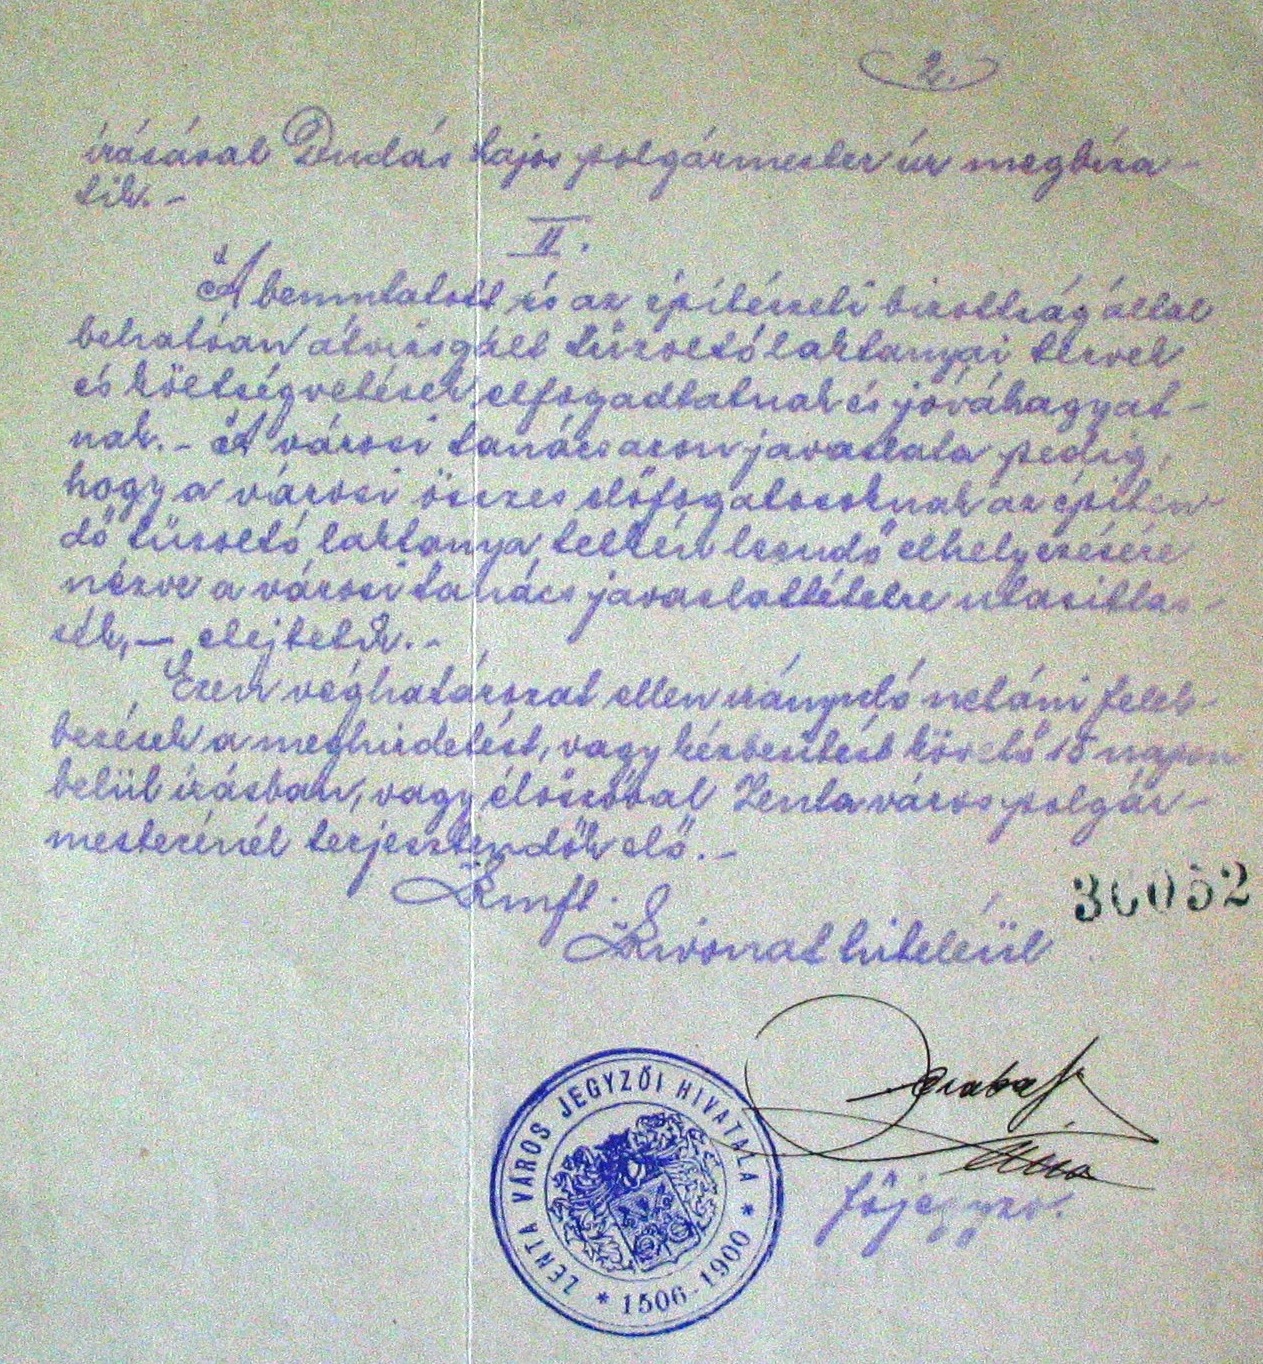 2.
írásával Dudás Lajos polgármester úr megbiza-
tik. -
II.
A bemutatott és az épitészeti bizottság által
behatóan átvizsgált tűzoltólaktanyai tervek
és költségvetések elfogadtatnak és jóváhagyat-
nak. - A városi tanács azon javaslata pedig,
hogy a városi összes előfogatosoknak az épiten-
dő tűzoltó laktanya telkén leendő elhelyezésére
nézve a városi tanács javaslattételre utasittas-
sék, — elejtetik. -
Ezen véghatározat ellen irányuló netáni feleb-
bezések a meghirdetést, vagy kézbesitést követő 15 napon
belül irásban, vagy élőszóval Zenta város polgár-
mesterénél terjesztendők elő. -
Kmft.
30052
Kivonat hiteléül
főjegyző.
ZENTA VÁROS JEGYZŐI HIVATALA
* 1506-1900 *